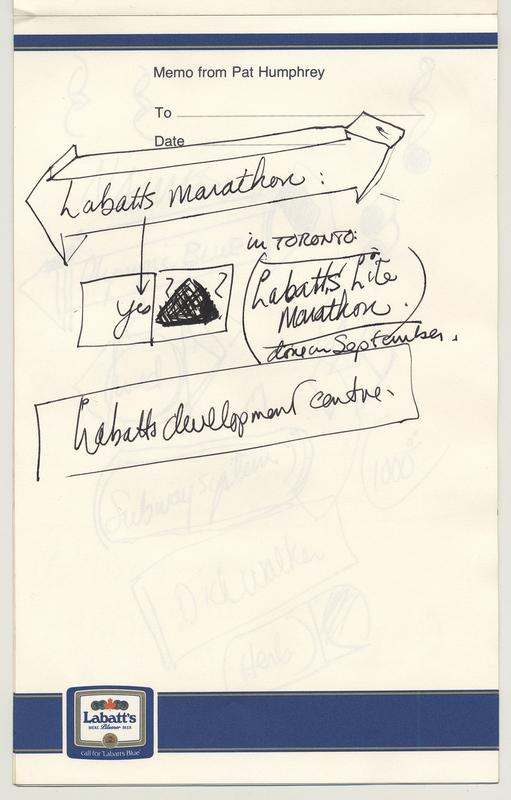 Memo from Pat Humphrey
To
Date
Labatts Marathon :
in TORONTO:
yes ? ?
Labatts' Lite
Marathon .
done in September .
Labatts development centre.
Olympic BLUE
Subway system
1000
Dick Walker
Herb
Labatt's
Pilsener BEER
call for "Labatt's Blue"